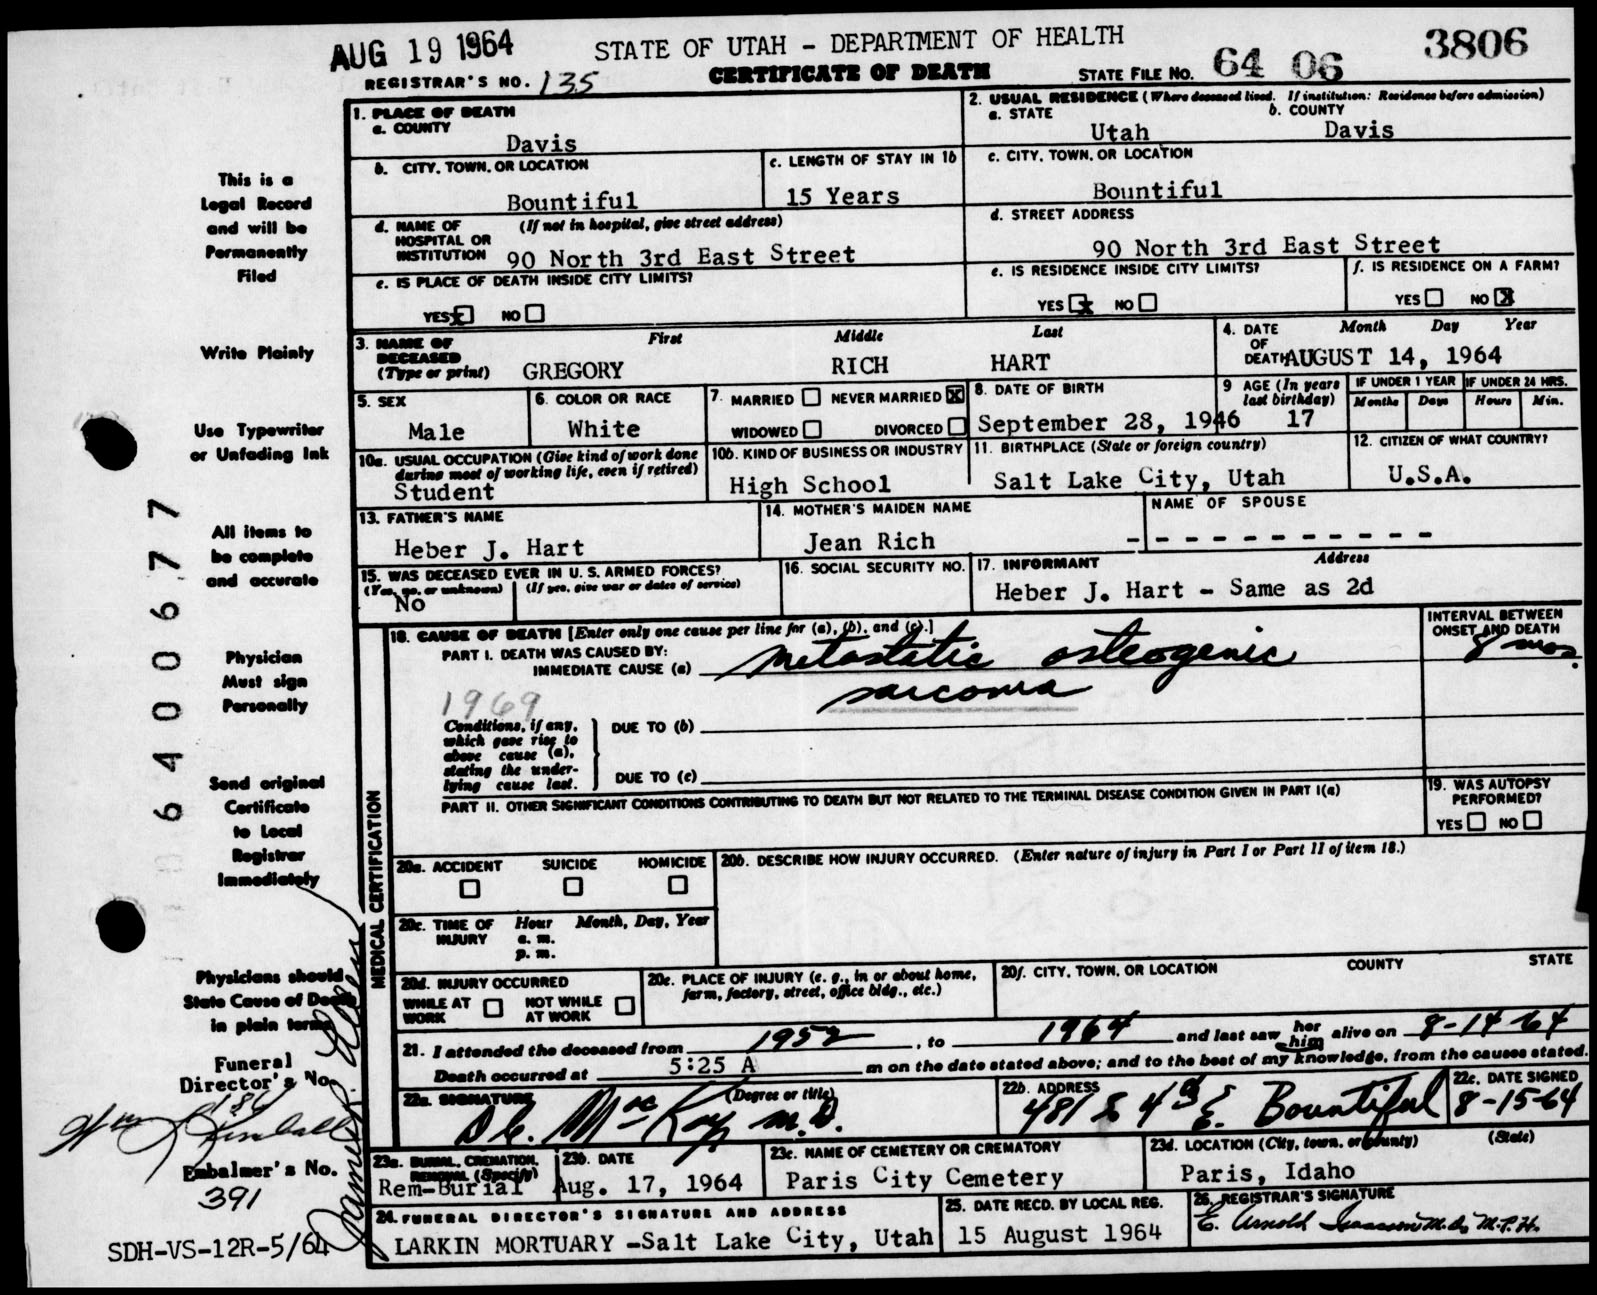 AUG 19 1964
STATE OF UTAH - DEPARTMENT OF HEALTH
3806
REGISTRAR'S NO. 135
CERTIFICATE OF DEATH
STATE FILE NO. 64 06
1. PLACE OF DEATH
a. COUNTY
Davis
2. USUAL RESIDENCE (Where deceased lived. If institution: Residence before admission)
a. STATE b. COUNTY
Utah Davis
b. CITY, TOWN, OR LOCATION
Bountiful
c. LENGTH OF STAY IN 1b
15 Years
c. CITY, TOWN, OR LOCATION
Bountiful
d. NAME OF HOSPITAL OR INSTITUTION (If not in hospital, give street address)
90 North 3rd East Street
d. STREET ADDRESS
90 North 3rd East Street
e. IS PLACE OF DEATH INSIDE CITY LIMITS?
YES x NO
e. IS RESIDENCE INSIDE CITY LIMITS?
YES x NO
f. IS RESIDENCE ON A FARM?
YES NO x
3. NAME OF DECEASED (Type or print)
First Middle Last
GREGORY RICH HART
4. DATE OF DEATH Month Day Year
AUGUST 14, 1964
5. SEX
Male
6. COLOR OR RACE
White
7. MARRIED NEVER MARRIED X
WIDOWED DIVORCED
8. DATE OF BIRTH
September 28, 1946
9 AGE (In years last birthday)
17
IF UNDER 1 YEAR IF UNDER 24 HRS.
Months Days Hours Min.
10a. USUAL OCCUPATION (Give kind of work done during most of working life, even if retired)
Student
10b. KIND OF BUSINESS OR INDUSTRY
High School
11. BIRTHPLACE (State or foreign country)
Salt Lake City, Utah
12. CITIZEN OF WHAT COUNTRY?
U.S.A.
13. FATHER'S NAME
Heber J. Hart
14. MOTHER'S MAIDEN NAME
Jean Rich
NAME OF SPOUSE
- - - - - - - - - - - -
15. WAS DECEASED EVER IN U. S. ARMED FORCES?
(Yes, no, or unknown) (If yes, give war or dates of service)
No
16. SOCIAL SECURITY NO.
17. INFORMANT Address
Heber J. Hart - Same as 2d
MEDICAL CERTIFICATION
18. CAUSE OF DEATH [Enter only one cause per line for (a), (b), and (c).]
PART I. DEATH WAS CAUSED BY:
IMMEDIATE CAUSE (a) metastatic osteogenic
sarcoma
INTERVAL BETWEEN ONSET AND DEATH
8 mos.
1969
Conditions, if any,
which gave rise to
above cause (a),
stating the under-
lying cause last.
DUE TO (b)
DUE TO (c)
PART II. OTHER SIGNIFICANT CONDITIONS CONTRIBUTING TO DEATH BUT NOT RELATED TO THE TERMINAL DISEASE CONDITION GIVEN IN PART I(a)
19. WAS AUTOPSY PERFORMED?
YES NO
20a. ACCIDENT SUICIDE HOMICIDE
20b. DESCRIBE HOW INJURY OCCURRED. (Enter nature of injury in Part I or Part II of item 18.)
20c. TIME OF INJURY Hour Month, Day, Year
a. m.
p. m.
20d. INJURY OCCURRED
WHILE AT WORK NOT WHILE AT WORK
20e. PLACE OF INJURY (e. g., in or about home, farm, factory, street, office bldg., etc.)
20f. CITY, TOWN, OR LOCATION COUNTY STATE
21. I attended the deceased from 1952, to 1964 and last saw her him alive on 8-14-64
Death occurred at 5:25 A m on the date stated above; and to the best of my knowledge, from the causes stated.
22a. SIGNATURE (Degree or title)
Mac Kay M.D.
22b. ADDRESS
Bountiful
22c. DATE SIGNED
8-15-64
23a. BURIAL, CREMATION, REMOVAL (Specify)
Rem-Burial
23b. DATE
Aug. 17, 1964
23c. NAME OF CEMETERY OR CREMATORY
Paris City Cemetery
23d. LOCATION (City, town, or county) (State)
Paris, Idaho
24. FUNERAL DIRECTOR'S SIGNATURE AND ADDRESS
LARKIN MORTUARY -Salt Lake City, Utah
25. DATE RECD. BY LOCAL REG.
15 August 1964
26. REGISTRAR'S SIGNATURE
E. Arnold Isaacson M.D., M.P.H.
This is a
Legal Record
and will be
Permanently
Filed
Write Plainly
Use Typewriter
or Unfading Ink
All items to
be complete
and accurate
Physician
Must sign
Personally
Send original
Certificate
to Local
Registrar
Immediately
Physicians should
State Cause of Death
in plain terms
Funeral
Director's No.
186
Wm Kimball
Embalmer's No.
391
SDH-VS-12R-5/64
6400677